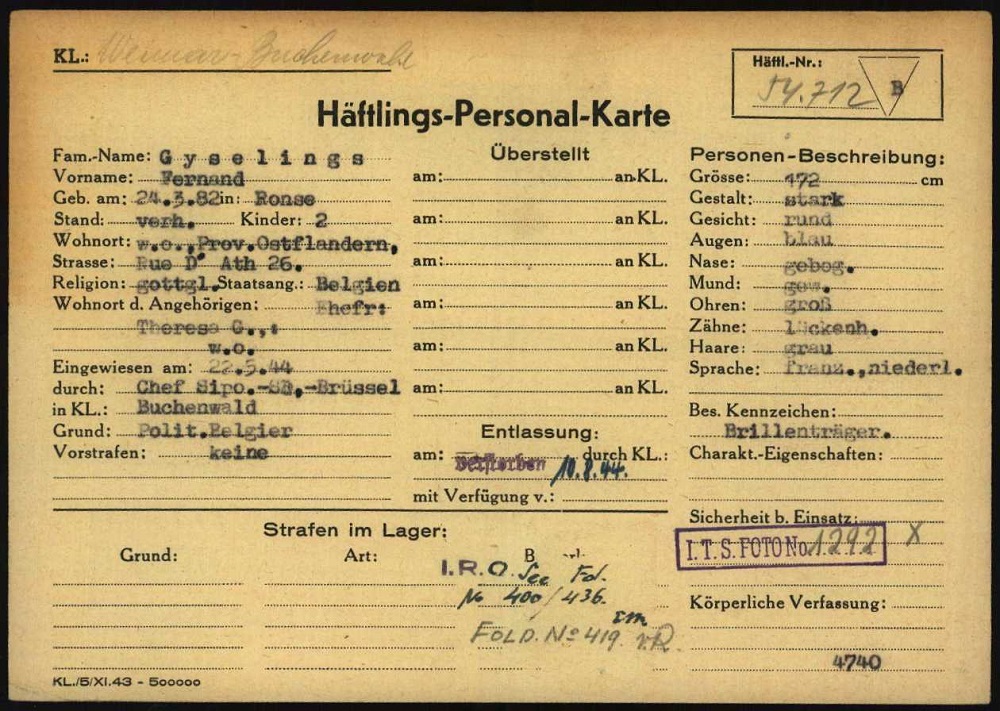 KL.: Weimar-Buchenwald
Häftl.-Nr.:
54.712 B
Häftlings-Personal-Karte
Fam.-Name: Gyselings
Vorname: Fernand
Geb. am: 24.3.82 in: Ronse
Stand: verh. Kinder: 2
Wohnort: w.o., Prov.Ostflandern,
Strasse: Rue D' Ath 26.
Religion: gottgl. Staatsang.: Belgien
Wohnort d. Angehörigen: Ehefr:
Theresa G.,:
w.o.
Eingewiesen am: 22.5.44
durch: Chef Sipo.-SD,-Brüssel
in KL.: Buchenwald
Grund: Polit.Belgier
Vorstrafen: keine
Überstellt
am: an KL.
am: an KL.
am: an KL.
am: an KL.
am: an KL.
am: an KL.
Entlassung:
am: verstorben 10.8.44. durch KL.:
mit Verfügung v.:
Personen-Beschreibung:
Grösse: 172 cm
Gestalt: stark
Gesicht: rund
Augen: blau
Nase: gebog.
Mund: gew.
Ohren: groß
Zähne: lückenh.
Haare: grau
Sprache: franz.,niederl.
Bes. Kennzeichen:
Brillenträger.
Charakt.-Eigenschaften:
Sicherheit b. Einsatz:
I.T.S. FOTO No 1292 X
Körperliche Verfassung:
4740
Strafen im Lager:
Grund: Art: B
I.R.O. See Fol.
No 400/436.
FOLD. No 419.
KL./5/XI.43 - 500000